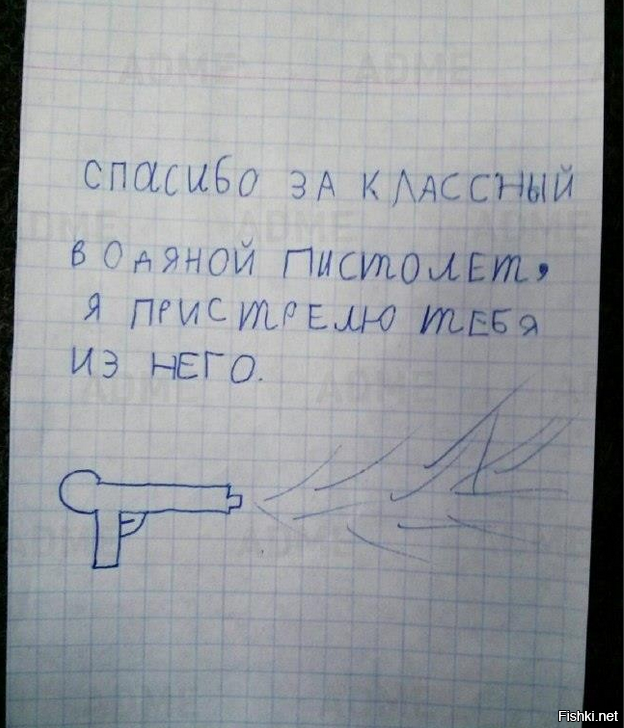 СПАСИБО ЗА КЛАССНЫЙ
ВОДЯНОЙ ПИСТОЛЕТ,
Я ПРИСТРЕЛЮ ТЕБЯ
ИЗ НЕГО.
ADME ADME
ADME ADME ADME
ADME ADME
ADME ADME
Fishki.net